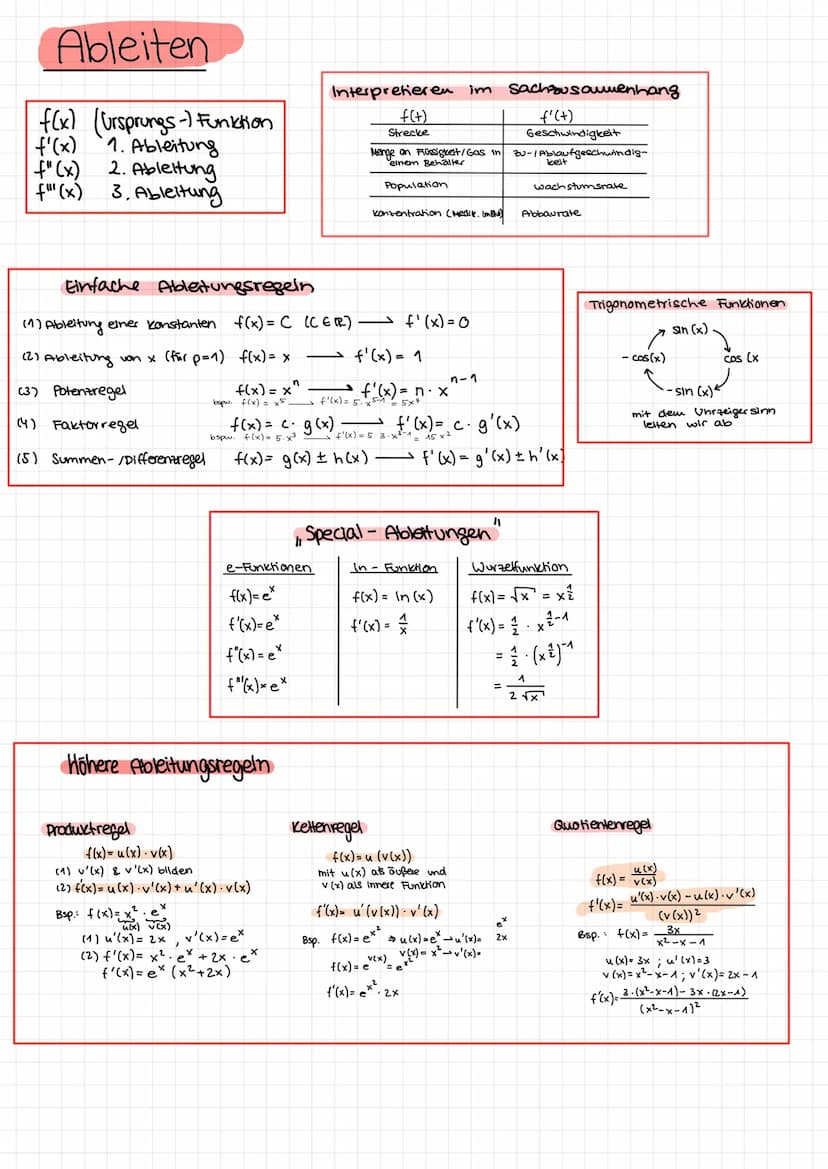 Ableiten
f(x) (Ursprungs-) Funktion
f'(x) 1. Ableitung
f''(x) 2. Ableitung
f'''(x) 3. Ableitung
Interpretieren im Sachzusammenhang
f(t) f'(t)
Strecke Geschwindigkeit
Menge an Flüssigkeit/Gas in einem Behälter Zu-/Ablaufgeschwindig-keit
Population Wachstumsrate
Konzentration (Medik. im Blut) Abbaurate
Einfache Ableitungsregeln
(1) Ableitung einer Konstanten f(x) = C (C ∈ ℝ) → f'(x) = 0
(2) Ableitung von x (für p=1) f(x) = x → f'(x) = 1
(3) Potenzregel f(x) = xⁿ → f'(x) = n · xⁿ⁻¹
bspw. f(x) = x⁵ → f'(x) = 5 · x⁵⁻¹ = 5x⁴
(4) Faktorregel f(x) = c · g(x) → f'(x) = c · g'(x)
bspw. f(x) = 5 · x³ → f'(x) = 5 · 3 · x³⁻¹ = 15x²
(5) Summen-/Differenzregel f(x) = g(x) ± h(x) → f'(x) = g'(x) ± h'(x)
Trigonometrische Funktionen
sin(x)
-cos(x) cos(x
-sin(x)
mit dem Uhrzeigersinn
leiten wir ab
„Special-Ableitungen"
e-Funktionen ln-Funktion Wurzelfunktion
f(x)=e^x f(x) = ln(x) f(x) = √x = x^(1/2)
f'(x)=e^x f'(x) = 1/x f'(x) = 1/2 · x^(1/2-1)
f''(x)=e^x = 1/2 · (x^(1/2))^-1
f'''(x)=e^x = 1/(2√x)
Höhere Ableitungsregeln
Produktregel
f(x) = u(x) · v(x)
(1) v'(x) & v'(x) bilden
(2) f'(x) = u(x) · v'(x) + u'(x) · v(x)
Bsp.: f(x) = x² · e^x
u(x) v(x)
(1) u'(x) = 2x , v'(x) = e^x
(2) f'(x) = x² · e^x + 2x · e^x
f'(x) = e^x (x²+2x)
Kettenregel
f(x) = u(v(x))
mit u(x) als äußere und
v(x) als innere Funktion
f'(x) = u'(v(x)) · v'(x)
Bsp. f(x) = e^x² → u(x) = e^x → u'(x) = e^x
v(x) = x² → v'(x) = 2x
f(x) = e^v(x) = e^x²
f'(x) = e^x² · 2x
Quotientenregel
f(x) = u(x)/v(x)
f'(x) = (u'(x)·v(x) - u(x)·v'(x))/(v(x))²
Bsp.: f(x) = 3x/(x²-x-1)
u(x) = 3x ; u'(x) = 3
v(x) = x²-x-1 ; v'(x) = 2x-1
f'(x) = (3·(x²-x-1) - 3x·(2x-1))/(x²-x-1)²